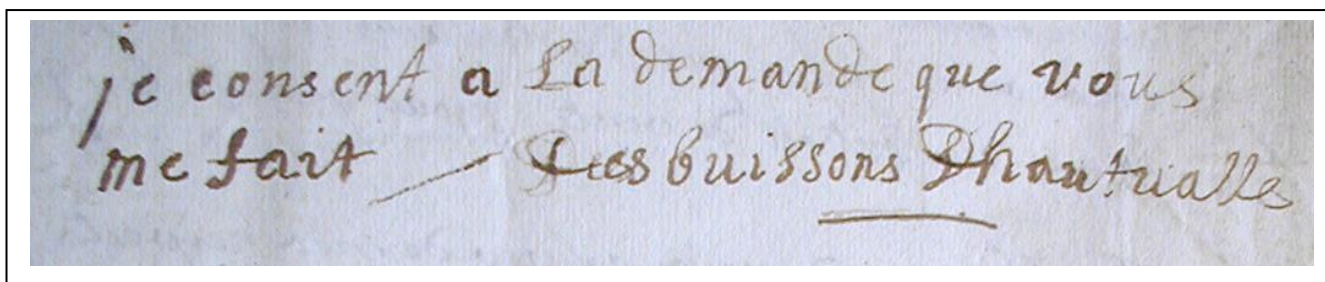 je consent a La demande que vous
me fait Desbuissons Dhautualle